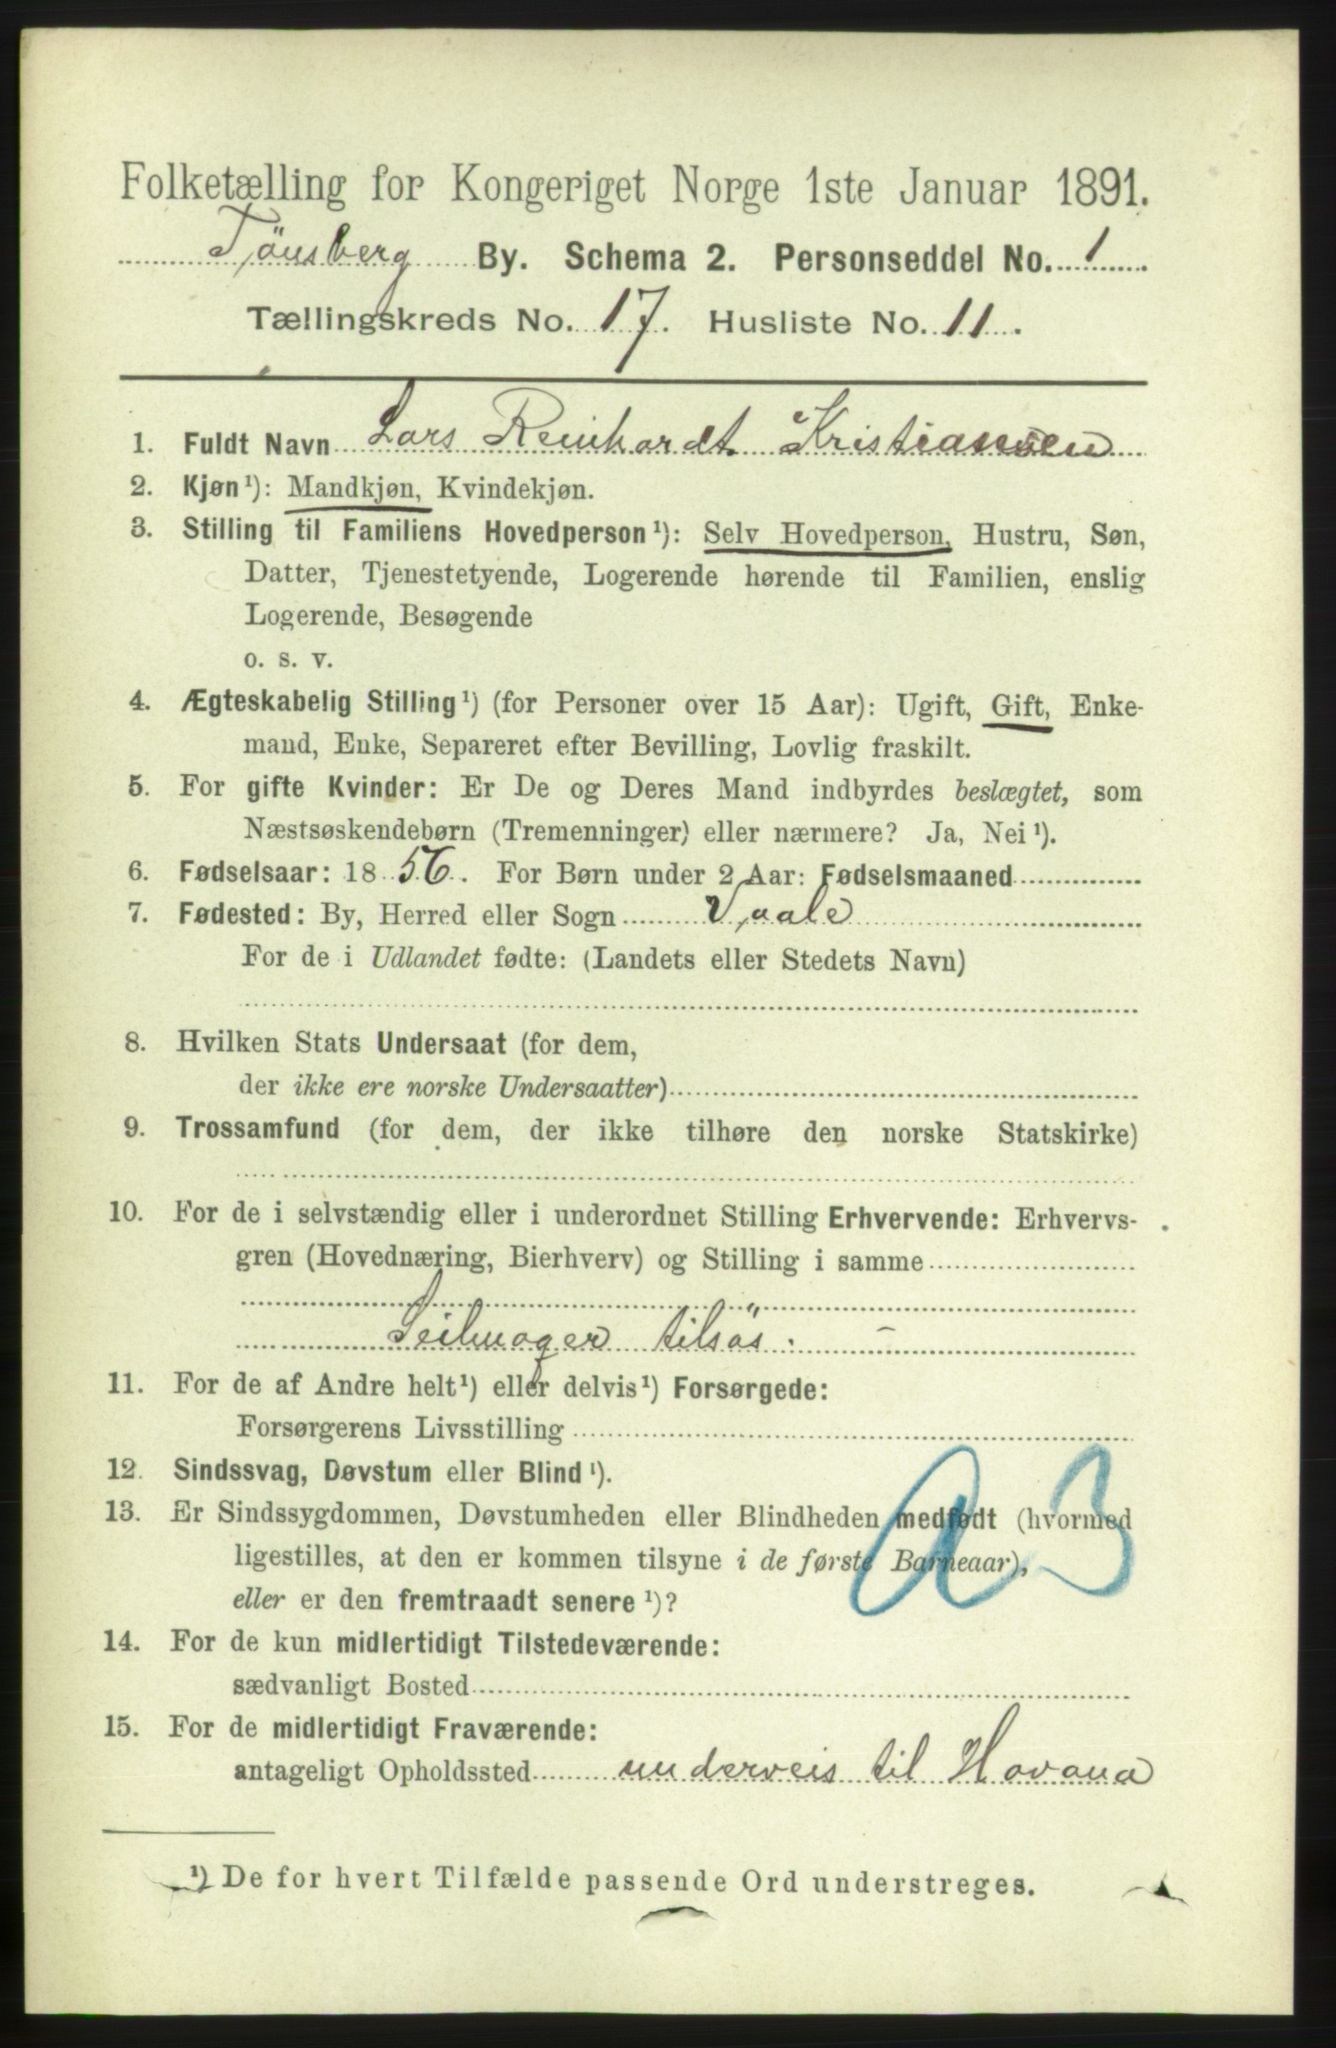 Folketælling for Kongeriget Norge 1ste Januar 1891.
Tönsberg By. Schema 2. Personseddel No. 1
Tællingskreds No. 17. Husliste No. 11.
1. Fuldt Navn Lars Reinhardt Kristiansen
2. Kjøn¹): Mandkjøn, Kvindekjøn.
3. Stilling til Familiens Hovedperson¹): Selv Hovedperson, Hustru, Søn,
Datter, Tjenestetyende, Logerende hørende til Familien, enslig
Logerende, Besøgende
o. s. v.
4. Ægteskabelig Stilling¹) (for Personer over 15 Aar): Ugift, Gift, Enke-
mand, Enke, Separeret efter Bevilling, Lovlig fraskilt.
5. For gifte Kvinder: Er De og Deres Mand indbyrdes beslægtet, som
Næstsøskendebørn (Tremenninger) eller nærmere? Ja, Nei¹).
6. Fødselsaar: 1856. For Børn under 2 Aar: Fødselsmaaned
7. Fødested: By, Herred eller Sogn Vaale
For de i Udlandet fødte: (Landets eller Stedets Navn)
8. Hvilken Stats Undersaat (for dem,
der ikke ere norske Undersaatter)
9. Trossamfund (for dem, der ikke tilhøre den norske Statskirke)
10. For de i selvstændig eller i underordnet Stilling Erhvervende: Erhvervs-
gren (Hovednæring, Bierhverv) og Stilling i samme
Seilmager tilsös. –
11. For de af Andre helt¹) eller delvis¹) Forsørgede:
Forsørgerens Livsstilling
12. Sindssvag, Døvstum eller Blind¹).
13. Er Sindssygdommen, Døvstumheden eller Blindheden medfødt (hvormed
ligestilles, at den er kommen tilsyne i de første Barneaar),
eller er den fremtraadt senere¹)?
a 3
14. For de kun midlertidigt Tilstedeværende:
sædvanligt Bosted
15. For de midlertidigt Fraværende:
antageligt Opholdssted underveis til Havana
¹) De for hvert Tilfælde passende Ord understreges.